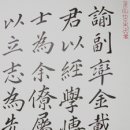 諭副率金載
君以經學傳
士為余僚屬
以立志為先